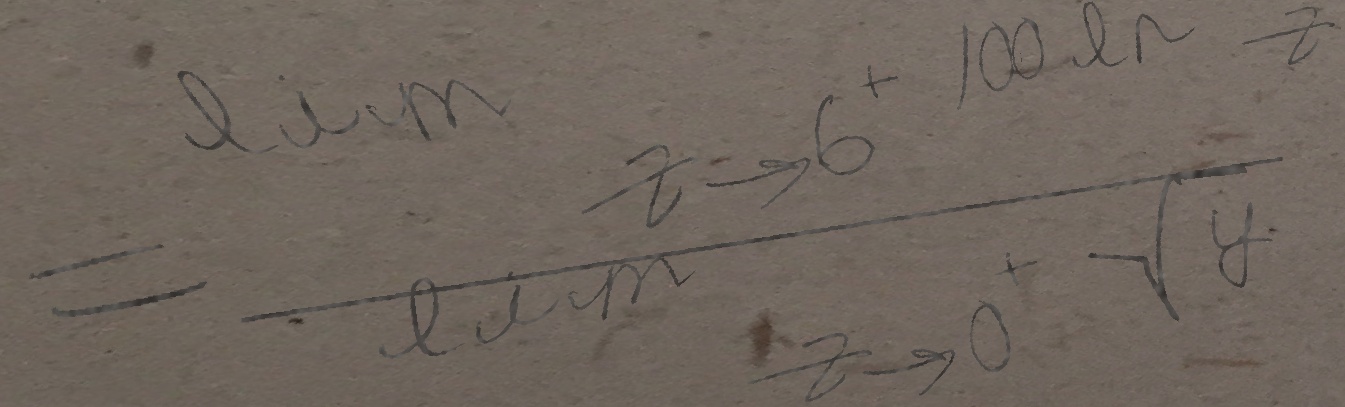 = \frac{\lim_{z \to 6^+} 100 \ln z}{\lim_{z \to 0^+} \sqrt{y}}